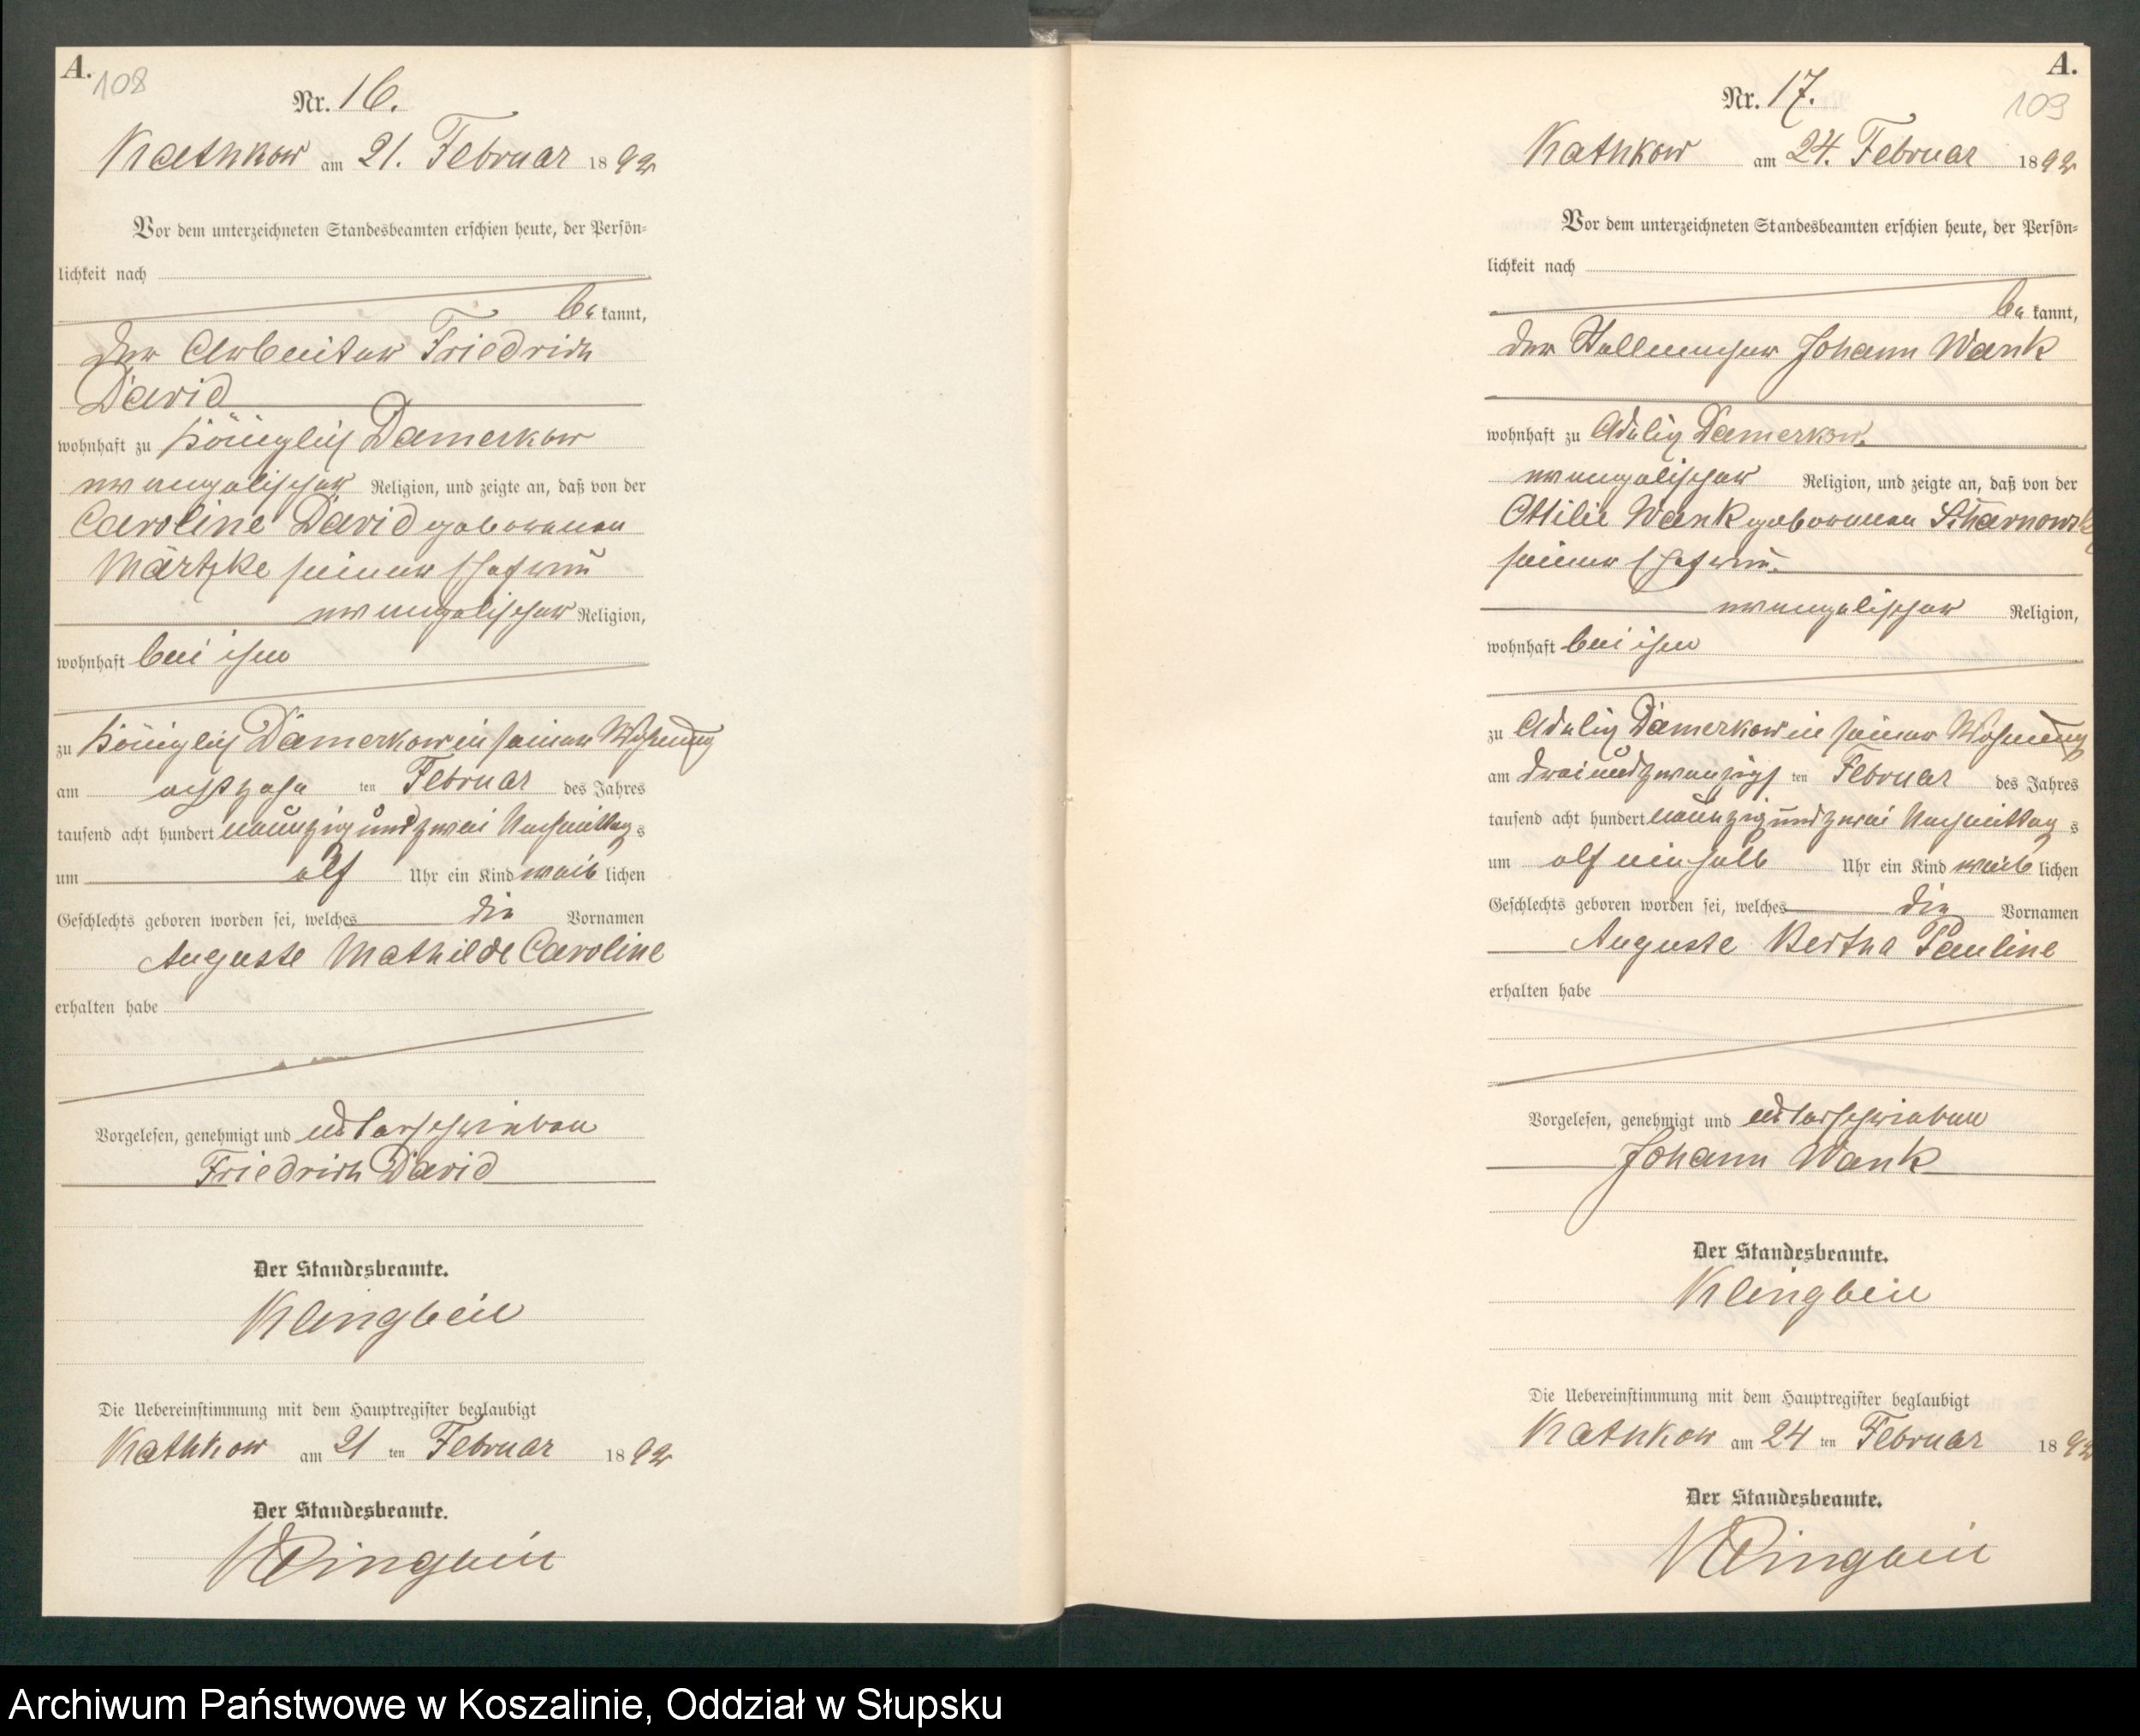 A.
108
Nr. 16.
Kathkow am 21. Februar 1892
Vor dem unterzeichneten Standesbeamten erschien heute, der Persön-
lichkeit nach
be kannt,
der Arbeiter Friedrich
David
wohnhaft zu Königlich Damerkow
evangelischer Religion, und zeigte an, daß von der
Caroline David geborenen
Märtzke seiner Ehefrau
evangelischer Religion,
wohnhaft bei ihm
zu Königlich Damerkow in seiner Wohnung
am achtzehn ten Februar des Jahres
tausend acht hundert neunzig und zwei Nachmittag s
um elf Uhr ein Kind weib lichen
Geschlechts geboren worden sei, welches die Vornamen
Auguste Mathilde Caroline
erhalten habe
Vorgelesen, genehmigt und unterschrieben
Friedrich David
Der Standesbeamte.
Klingbeil
Die Uebereinstimmung mit dem Hauptregister beglaubigt
Kathkow am 21 ten Februar 1892
Der Standesbeamte.
Klingbeil
A.
109
Nr. 17.
Kathkow am 24. Februar 1892
Vor dem unterzeichneten Standesbeamten erschien heute, der Persön-
lichkeit nach
be kannt,
der Johann Wank
wohnhaft zu Adelig Damerkow.
evangelischer Religion, und zeigte an, daß von der
Ottilie Wank geborenen
seiner Ehefrau.
evangelischer Religion,
wohnhaft bei ihm
zu Adelig Damerkow in seiner Wohnung
am dreiundzwanzigs ten Februar des Jahres
tausend acht hundert neunzig und zwei Nachmittag s
um elf einhalb Uhr ein Kind weib lichen
Geschlechts geboren worden sei, welches die Vornamen
Auguste Bertha Pauline
erhalten habe
Vorgelesen, genehmigt und unterschrieben
Johann Wank
Der Standesbeamte.
Klingbeil
Die Uebereinstimmung mit dem Hauptregister beglaubigt
Kathkow am 24 ten Februar 1892
Der Standesbeamte.
Klingbeil
Archiwum Państwowe w Koszalinie, Oddział w Słupsku